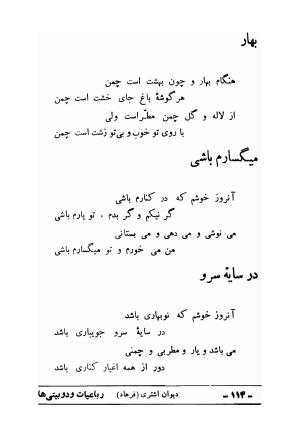 بهار
هنگام بهار و چون بهشت است چمن
هر گوشهٔ باغ جای خشت است چمن
از لاله و گل چمن مطّراست ولی
با روی تو خوب و بی‌تو زشت است چمن
میگسارم باشی
آنروز خوشم که در کنارم باشی
گر نیکم و گر بدم ، تو یارم باشی
می نوشی و می دهی و می بستانی
من می خورم و تو میگسارم باشی
در سایهٔ سرو
آنروز خوشم که نوبهاری باشد
در سایهٔ سرو جویباری باشد
می باشد و یار و مطربی و چمنی
دور از همه اغیار کناری باشد
- ۱۱۴ - دیوان اشتری (فرهاد) رباعیات و دوبیتی‌ها